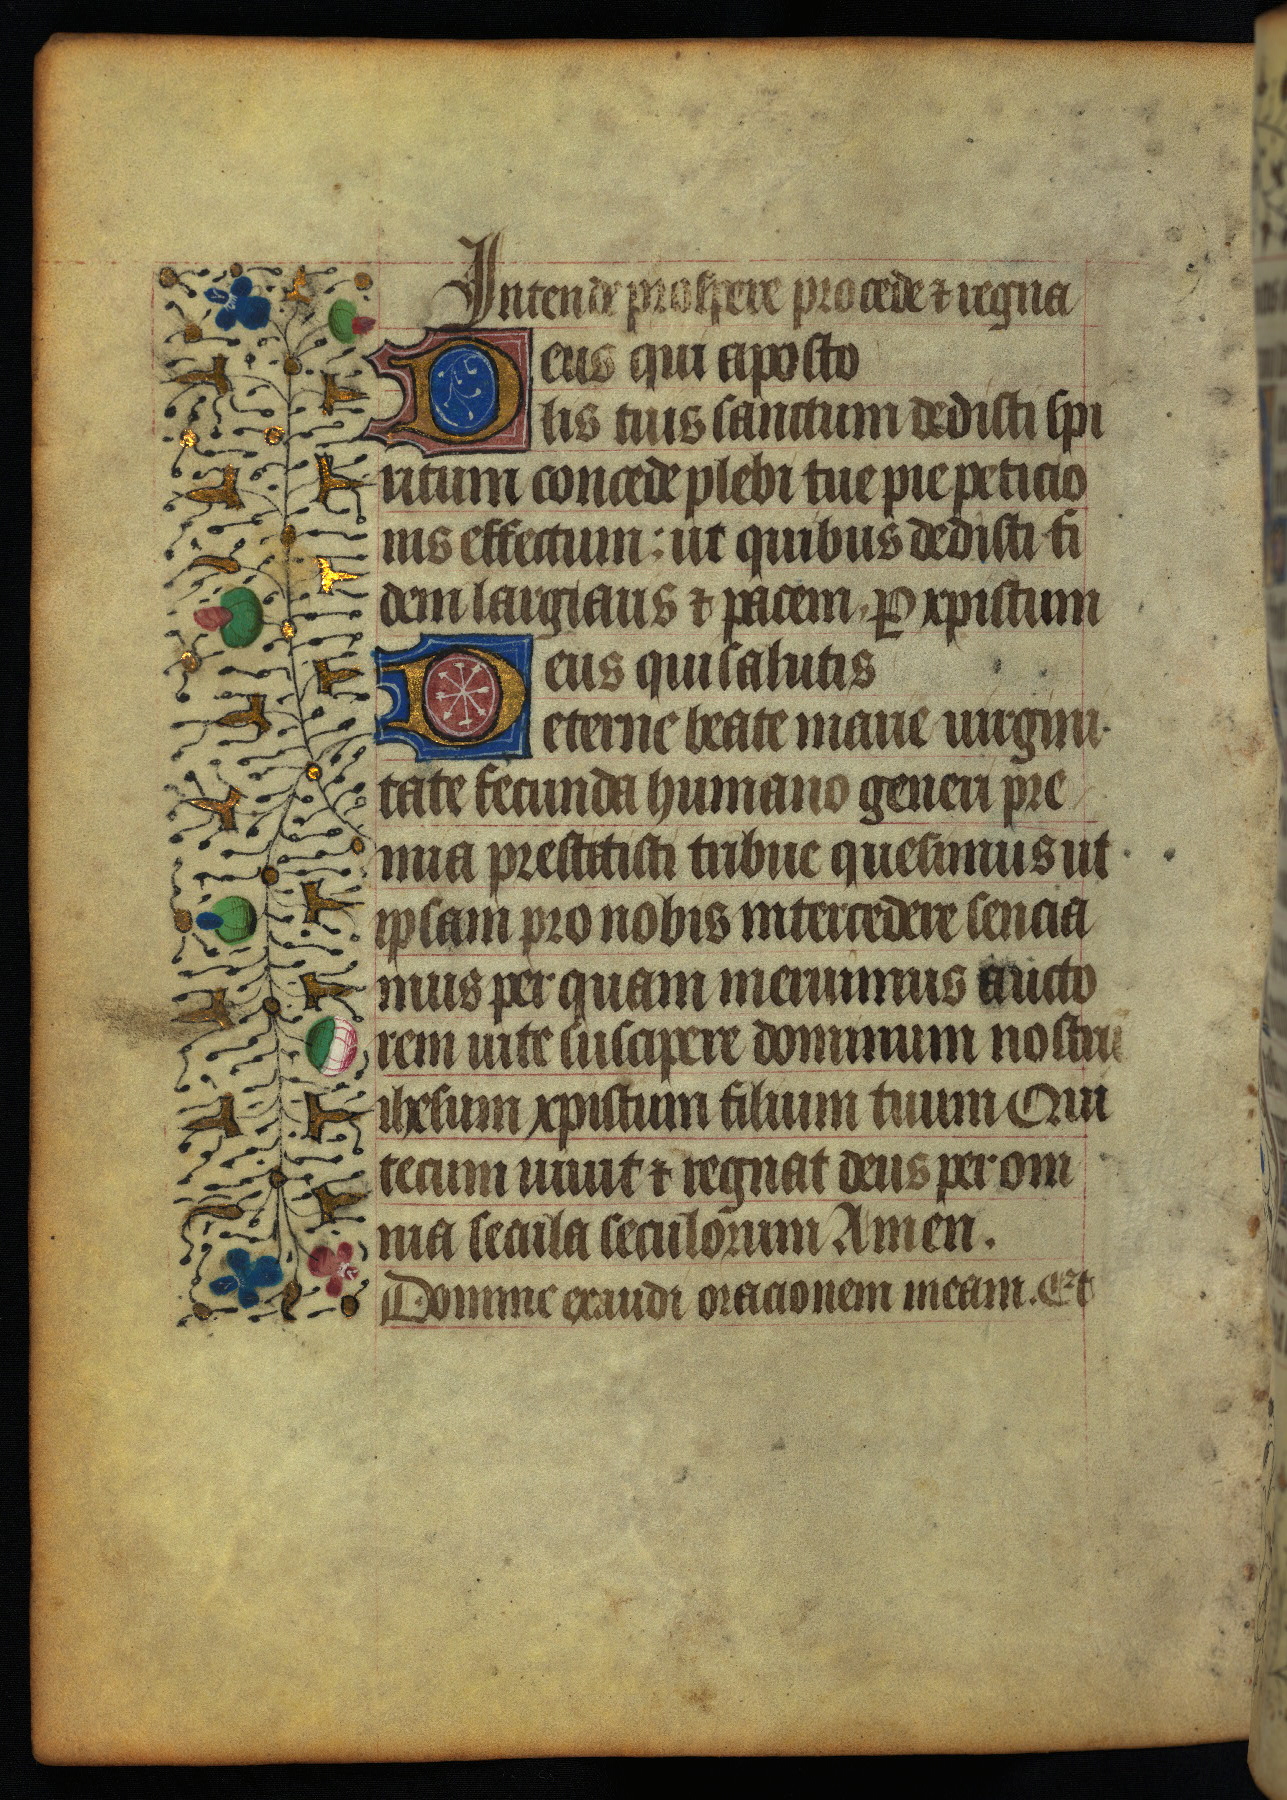 Intende prospere procede ⁊ regna
Deus qui aposto
lis tuis sanctum dedisti spi
ritum concede plebi tue pie peticio
nis effectum : ut quibus dedisti fi
dem largiaris ⁊ pacem . Ꝑ xpistum
Deus qui salutis
eterne beate marie uirgini
tate fecunda humano generi pre
mia prestitisti tribue quesumus ut
ipsam pro nobis intercedere sencia
mus per quam meruimus aucto
rem uite suscipere dominum nostrū
ihesum xpistum filium tuum Qui
tecum uiuit ⁊ regnat deus per om
nia secula seculorum Amen .
Domine exaudi oracionem meam . Et